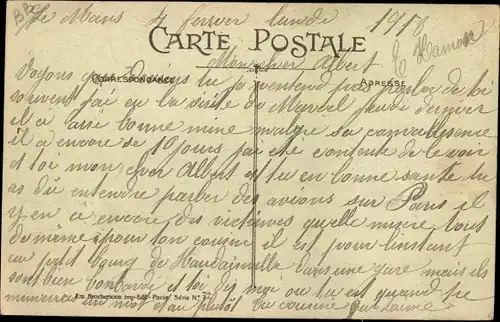 Le Mans 4 fevrier lundi 1918
CARTE POSTALE
Mon cher Albert
CORRESPONDANCE
ADRESSE
Hamon
Voyons que tu ja ventend pas parler de toi
souvent j'ai eu la visite de Marcel jeudi dernier
il a assé bonne mine malgre sa convalesence
il a encore de 10 jours j'ai eté contente de le voir
et toi mon cher Albert es tu en bonne santé tu
as dû entendre parler des avions sur Paris il
y en a encore des victimes quelle misere tout
de même pour ton cousin il est pour l'instant
au petit bourg de Haudainville dans une gare mais ils
sont bien bombardé et toi dis moi ou tu est quand
Em. Brocherioux imp-Edit - Paris Série N°
un mot et au plutôt ta cousine qui t'aime